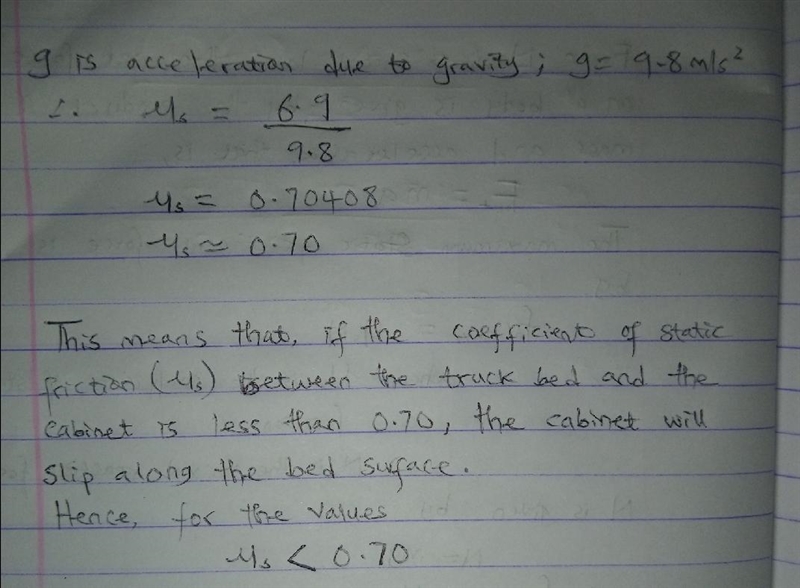 g is acceleration due to gravity; g = 9.8 m/s²
∴ μs = 6.9
9.8
μs = 0.70408
μs ≃ 0.70
This means that, if the coefficient of static
friction (μs) between the truck bed and the
cabinet is less than 0.70, the cabinet will
slip along the bed surface.
Hence, for the values
μs < 0.70